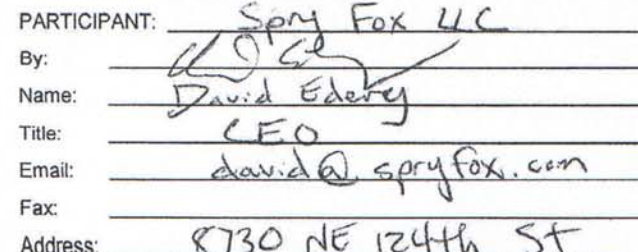 PARTICIPANT: Spry Fox LLC
By:
Name: David Edery
Title: CEO
Email: david@spryfox.com
Fax:
Address: 8730 NE 124th St